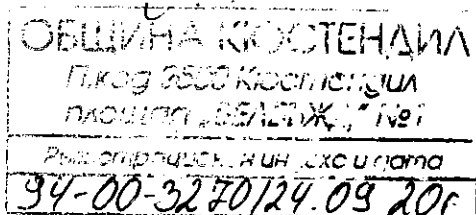 ОБЩИНА КЮСТЕНДИЛ
П.код 2500 Кюстендил
площад „ВЕЛБЪЖД“ №1
Регистрационен индекс и дата
94-00-3270/24.09.20